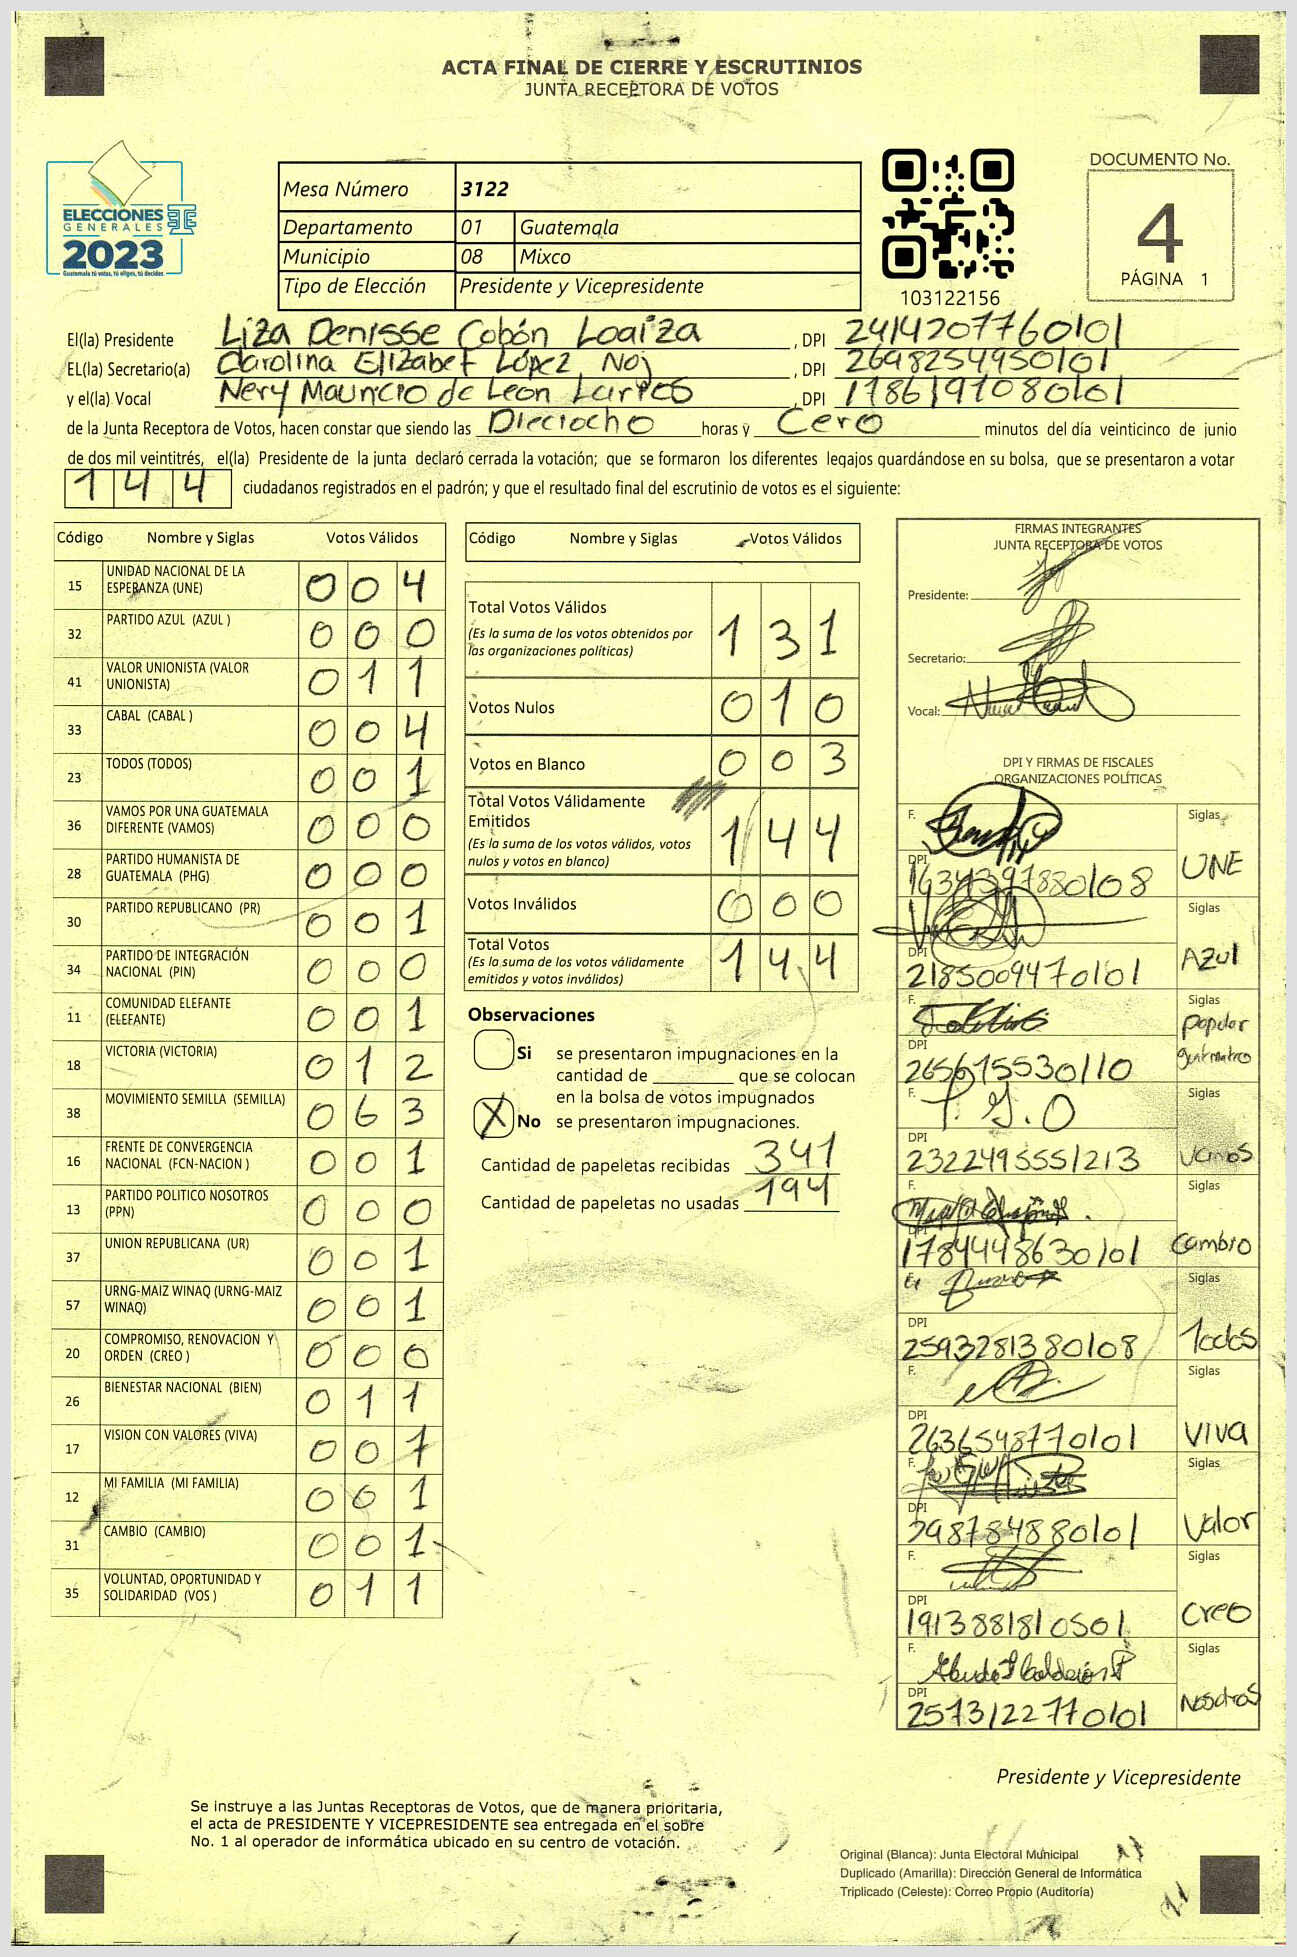 ACTA FINAL DE CIERRE Y ESCRUTINIOS
JUNTA RECEPTORA DE VOTOS
ELECCIONES
GENERALES
2023
Guatemala tú votas, tú eliges, tú decides
Mesa Número 3122
Departamento 01 Guatemala
Municipio 08 Mixco
Tipo de Elección Presidente y Vicepresidente
103122156
DOCUMENTO No.
4
PÁGINA 1
El(la) Presidente Liza Denisse Cobón Loaiza, DPI 2414207760101
EL(la) Secretario(a) Carolina Elizabet López Noj, DPI 2698254950101
y el(la) Vocal Nery Mauricio de Leon Larios, DPI 1786197080101
de la Junta Receptora de Votos, hacen constar que siendo las Dieciocho horas y Cero minutos del día veinticinco de junio
de dos mil veintitrés, el(la) Presidente de la junta declaró cerrada la votación; que se formaron los diferentes legajos guardándose en su bolsa, que se presentaron a votar
144 ciudadanos registrados en el padrón; y que el resultado final del escrutinio de votos es el siguiente:
Código Nombre y Siglas Votos Válidos
15 UNIDAD NACIONAL DE LA ESPERANZA (UNE) 004
32 PARTIDO AZUL (AZUL ) 000
41 VALOR UNIONISTA (VALOR UNIONISTA) 011
33 CABAL (CABAL ) 004
23 TODOS (TODOS) 001
36 VAMOS POR UNA GUATEMALA DIFERENTE (VAMOS) 000
28 PARTIDO HUMANISTA DE GUATEMALA (PHG) 000
30 PARTIDO REPUBLICANO (PR) 001
34 PARTIDO DE INTEGRACIÓN NACIONAL (PIN) 000
11 COMUNIDAD ELEFANTE (ELEFANTE) 001
18 VICTORIA (VICTORIA) 012
38 MOVIMIENTO SEMILLA (SEMILLA) 063
16 FRENTE DE CONVERGENCIA NACIONAL (FCN-NACION ) 001
13 PARTIDO POLITICO NOSOTROS (PPN) 000
37 UNION REPUBLICANA (UR) 001
57 URNG-MAIZ WINAQ (URNG-MAIZ WINAQ) 001
20 COMPROMISO, RENOVACION Y ORDEN (CREO ) 000
26 BIENESTAR NACIONAL (BIEN) 011
17 VISION CON VALORES (VIVA) 007
12 MI FAMILIA (MI FAMILIA) 001
31 CAMBIO (CAMBIO) 001
35 VOLUNTAD, OPORTUNIDAD Y SOLIDARIDAD (VOS ) 011
Código Nombre y Siglas Votos Válidos
Total Votos Válidos 131
(Es la suma de los votos obtenidos por
las organizaciones políticas)
Votos Nulos 010
Votos en Blanco 003
Total Votos Válidamente
Emitidos 144
(Es la suma de los votos válidos, votos
nulos y votos en blanco)
Votos Inválidos 000
Total Votos 144
(Es la suma de los votos válidamente
emitidos y votos inválidos)
Observaciones
Si se presentaron impugnaciones en la
cantidad de ________ que se colocan
en la bolsa de votos impugnados
X No se presentaron impugnaciones.
Cantidad de papeletas recibidas 341
Cantidad de papeletas no usadas 194
FIRMAS INTEGRANTES
JUNTA RECEPTORA DE VOTOS
Presidente:
Secretario:
Vocal:
DPI Y FIRMAS DE FISCALES
ORGANIZACIONES POLÍTICAS
F. Siglas
DPI UNE
F. Siglas
DPI 2185009470101 Azul
F. Siglas
DPI 2656155530110 Popular
F. Siglas
DPI 2322495551213 Vamos
F. Siglas
DPI 1784448630101 Cambio
F. Siglas
DPI 2593281380108 Todos
F. Siglas
DPI 2636548770101 VIVA
F. Siglas
DPI 2987848880101 Valor
F. Siglas
DPI 1913881810501 Creo
F. Siglas
DPI 2573122770101 Nosotros
Presidente y Vicepresidente
Se instruye a las Juntas Receptoras de Votos, que de manera prioritaria,
el acta de PRESIDENTE Y VICEPRESIDENTE sea entregada en el sobre
No. 1 al operador de informática ubicado en su centro de votación.
Original (Blanca): Junta Electoral Municipal
Duplicado (Amarilla): Dirección General de Informática
Triplicado (Celeste): Correo Propio (Auditoría)